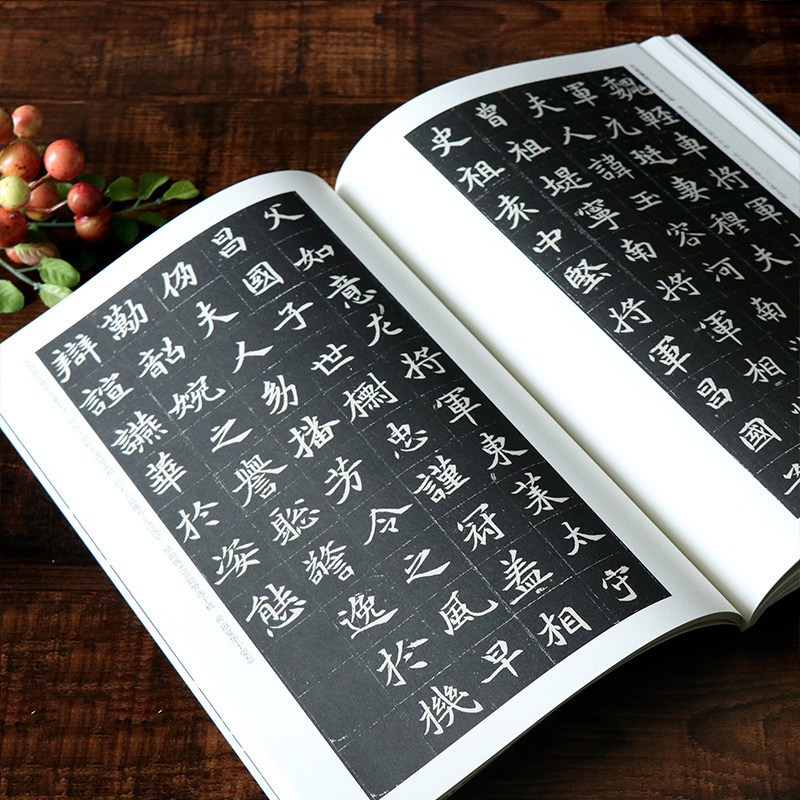 魏輕車將軍
軍元珽妻穆夫
夫人諱玉容河南
曾祖堤寧南將軍相
史祖袁中堅將軍昌國
父如意左將軍東萊太守
昌國子世樹忠謹冠蓋相
仍夫人幼播芳令之風早
勤韶婉之譽聡警逸於機
辯諠讌華於姿態